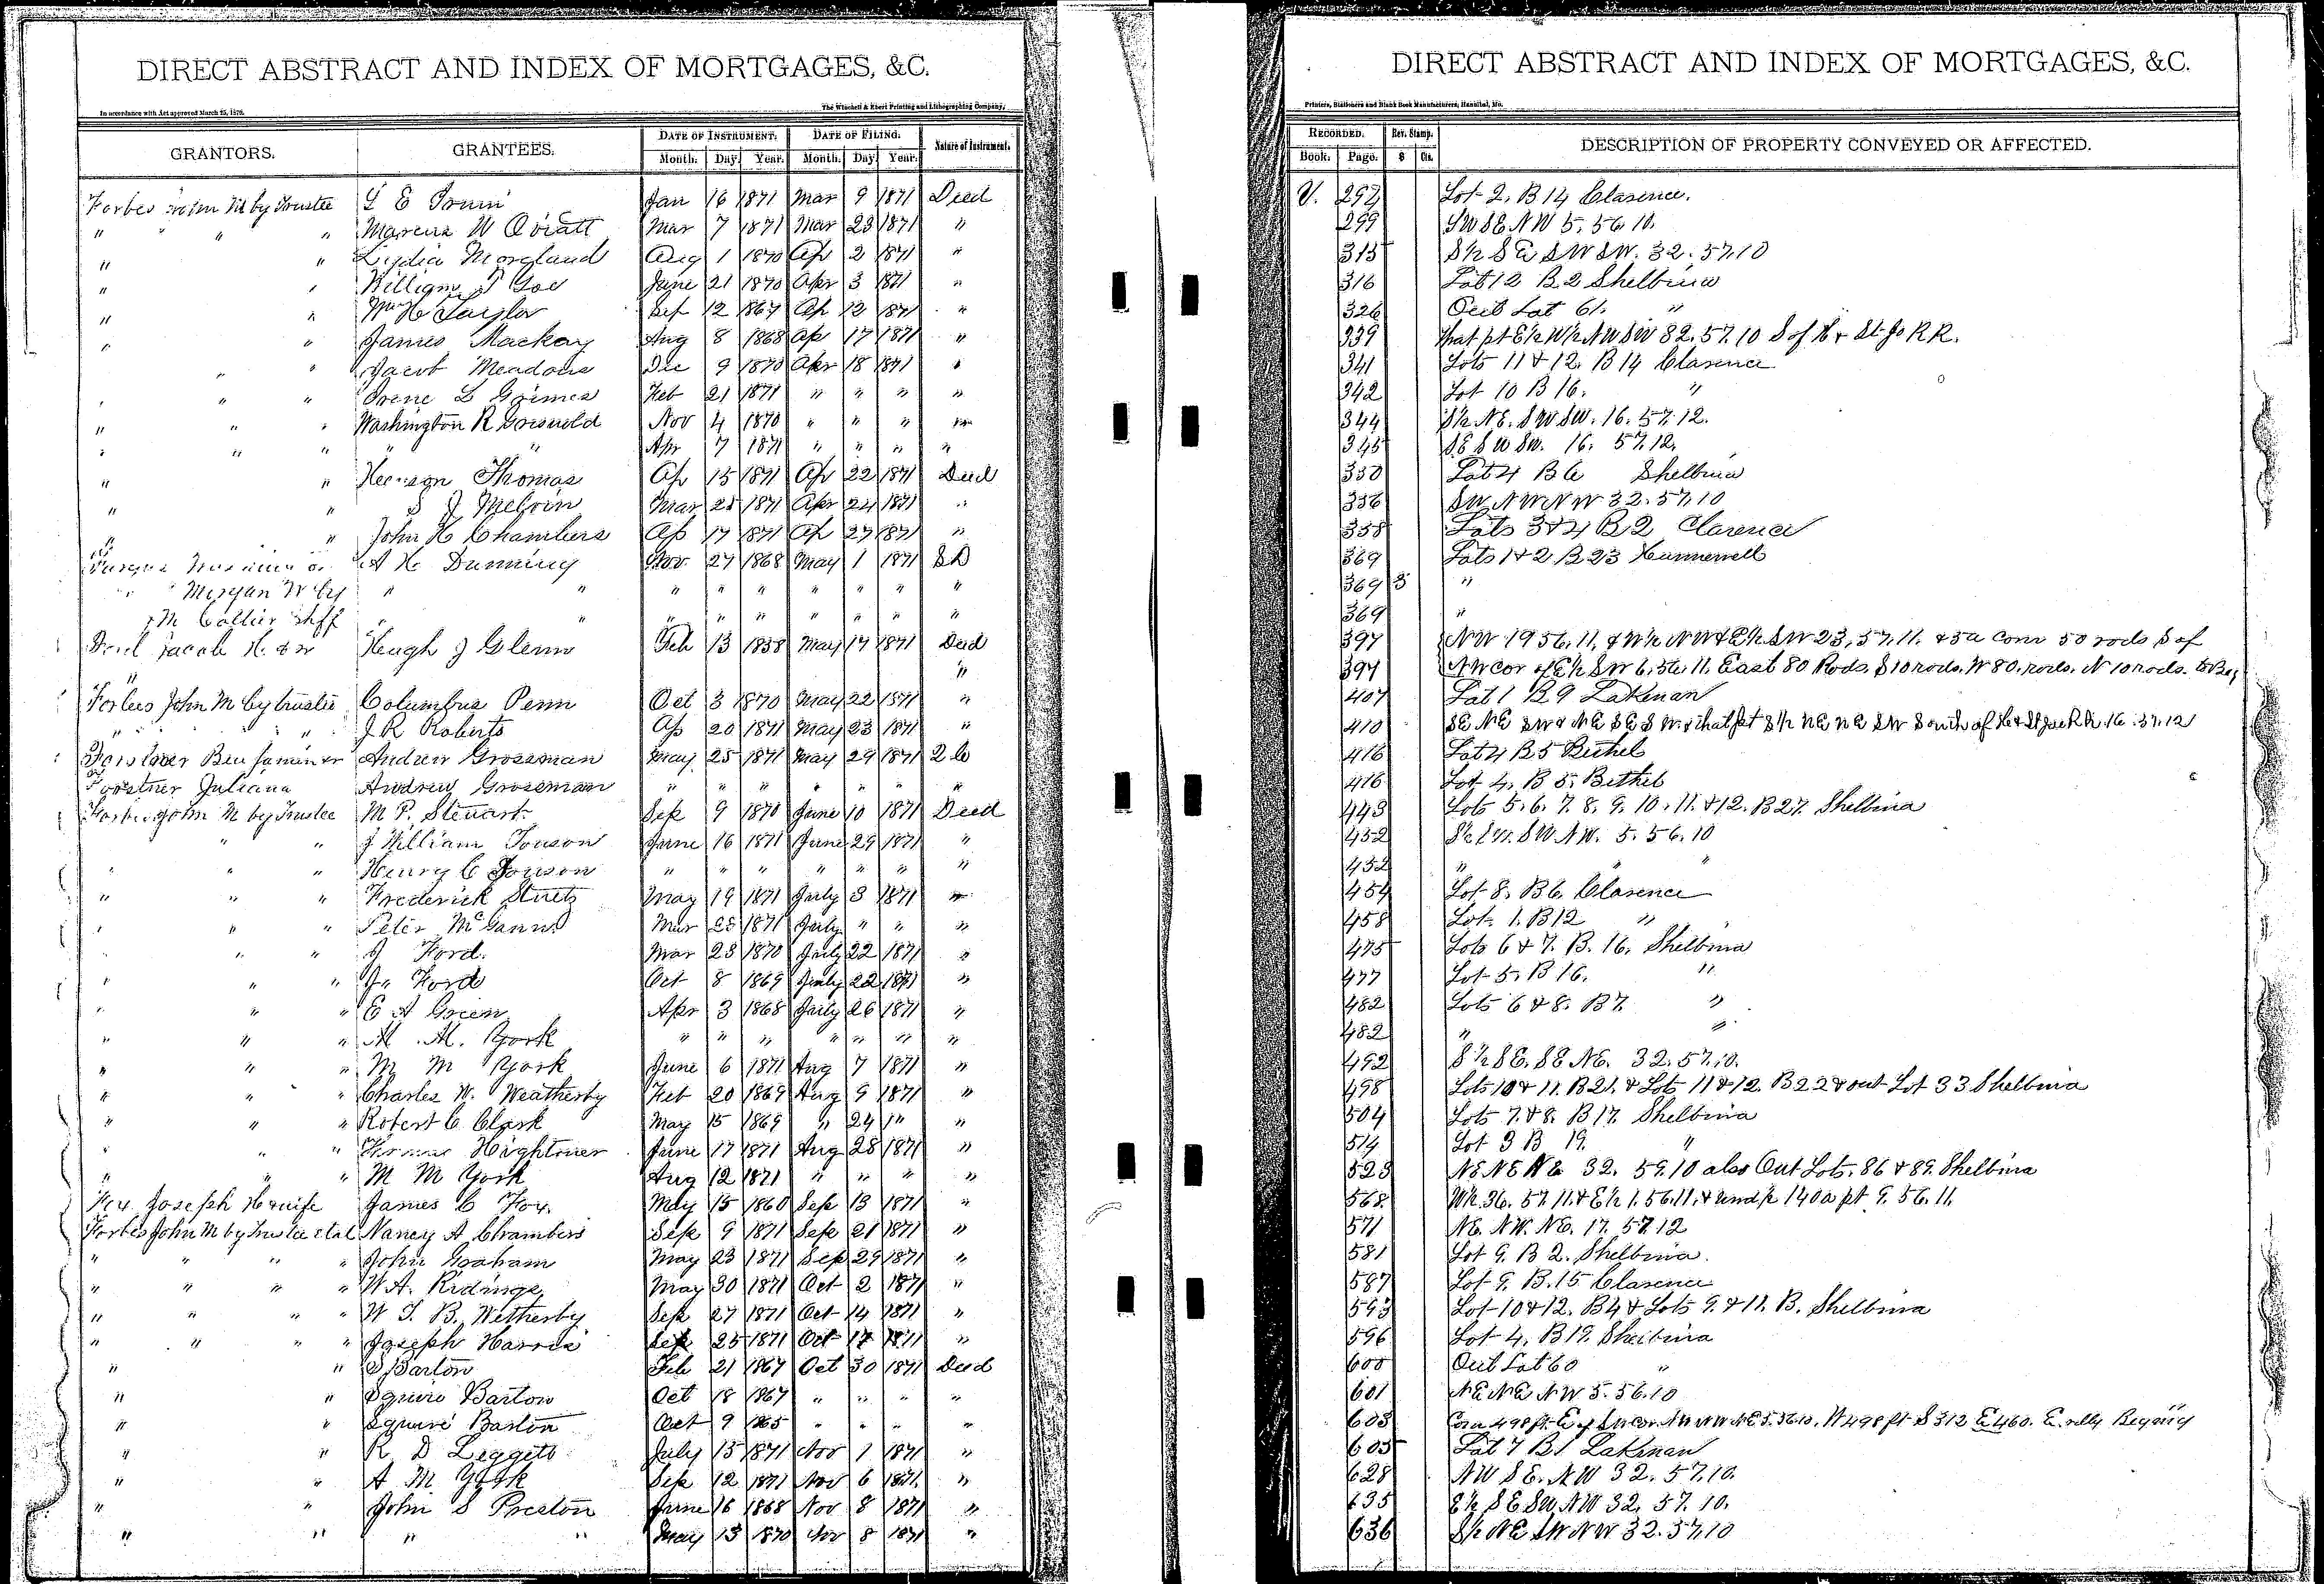 DIRECT ABSTRACT AND INDEX OF MORTGAGES, &C.
In accordance with Act approved March 25, 1879. The Winchell & Ebert Printing and Lithographing Company,
GRANTORS. GRANTEES. DATE OF INSTRUMENT. DATE OF FILING. Nature of Instrument.
Month. Day. Year. Month. Day. Year.
Forbes John M by Trustee L E Irwin Jan 16 1871 Mar 9 1871 Deed
" " " Marcus W Oviatt Mar 7 1871 Mar 23 1871 "
" " Lydia Moreland Aug 1 1870 Ap 2 1871 "
" " William Goe June 21 1870 Apr 3 1871 "
" " Wm H Taylor Sep 12 1867 Ap 12 1871 "
" " James Mackay Aug 8 1868 Ap 17 1871 "
" " Jacob Meadows Dec 9 1870 Apr 18 1871 "
" " " Irene L Grimes Feb 21 1871 " " " "
" " " Washington R Griswold Nov 4 1870 " " " "
" " " " " Apr 7 1871 " " " "
" " Thomas Ap 15 1871 Ap 22 1871 Deed
" " S J Melvin Mar 25 1871 Apr 24 1871 "
" " John H Chambers Ap 17 1871 Ap 27 1871 "
A H Dunning Nov 27 1868 May 1 1871 SD
" Morgan W by " " " " " " " " "
J M Collier Shff " " " " " " " " "
Jacob H & w Hugh J Glenn Feb 13 1858 May 17 1871 Deed
" "
Forbes John M by trustee Columbus Penn Oct 3 1870 May 22 1871 "
" " " J R Roberts Ap 20 1871 May 23 1871 "
Benjamin or Andrew Grossman May 25 1871 May 29 1871
Forstner Juliana Andrew Grossman " " " " " " "
Forbes John M by Trustee M P. Stewart Sep 9 1870 June 10 1871 Deed
" " J William Towson June 16 1871 June 29 1871 "
" " " Henry C Towson " " " " " " "
" " " Frederick May 19 1871 July 3 1871 "
" " " Peter McGann Mar 25 1871 July " " "
" " " J Ford. Mar 23 1870 July 22 1871 "
" " " Ford Oct 8 1869 July 22 1871 "
" " " E A Green Apr 3 1868 July 26 1871 "
" " " M. M. York " " " " " " "
" " " M M York June 6 1871 Aug 7 1871 "
" " " Charles W. Weatherby Feb 20 1869 Aug 9 1871 "
" " " Robert C Clark May 15 1869 " 24 " "
" " " Hightower June 17 1871 Aug 28 1871 "
" " " M M York Aug 12 1871 " " " "
Fox Joseph H & wife James C Fox. May 15 1860 Sep 13 1871 "
Forbes John M by Trustee et al Nancy A Chambers Sep 9 1871 Sep 21 1871 "
" " " " John Graham May 23 1871 Sep 29 1871 "
" " " " W A. Ridings May 30 1871 Oct 2 1871 "
" " " " W T. B. Wetherby Sep 27 1871 Oct 14 1871 "
" " " " Joseph Harris Sep 25 1871 Oct 17 1871 "
" " S Barton Feb 21 1867 Oct 30 1871 Deed
" " Squire Barton Oct 18 1867 " " " "
" " Squire Barton Oct 9 1865 " " " "
" " R D Leggett July 15 1871 Nov 1 1871 "
" " A M York Sep 12 1871 Nov 6 1871 "
" " John S Preston June 16 1868 Nov 8 1871 "
" " " " May 13 1870 Nov 8 1871 "
DIRECT ABSTRACT AND INDEX OF MORTGAGES, &C.
Printers, Stationers and Blank Book Manufacturers, Hannibal, Mo.
RECORDED. Rev. Stamp. DESCRIPTION OF PROPERTY CONVEYED OR AFFECTED.
Book. Page. $ Cts.
V. 297 Lot 2, B 14 Clarence.
299 SW SE NW 5. 56 10.
315 S½ SE SW SW. 32. 57.10
316 Lot 12 B 2 Shelbina
326 Out Lot 61. "
339 that pt E½ W½ NW SW 32. 57. 10 S of H & St Jo R R.
341 Lots 11 & 12. B 14 Clarence
342 Lot 10 B 16. "
344 S½ NE. SW SW. 16. 57. 12.
345 SE SW SW. 16. 57.12.
350 Lot 4 B 6 Shelbina
356 SW NW NW 32. 57.10
358 Lots 3 & 4 B 2 Clarence
369 Lots 1 & 2 B 23 Hunnewell
369 "
369 "
397 NW 19 56. 11. & W½ NW & E½ SW 23, 57. 11. & 5a Com 50 rods S of
397 NW cor of E½ SW 6. 56. 11. East 80 Rods, S 10 rods. W 80, rods. N 10 rods. to Beg
407 Lot 1 B 9 Lakenan
410 SE NE SW & NE SE SW. & that pt S½ NE NE SW South of H & St Joe R R. 16. 57. 12
416 Lot 4 B 5 Bethel
416 Lot 4, B 5, Bethel
443 Lots 5. 6. 7. 8. 9. 10. 11. & 12. B 27. Shelbina
452 S½ SW. SW NW. 5. 56. 10
452 " "
454 Lot 8. B 6. Clarence
458 Lot. 1. B 12 "
475 Lots 6 & 7. B. 16. Shelbina
477 Lot 5, B 16. "
482 Lots 6 & 8. B 7. "
482 " "
492 S½ SE. SE NE. 32. 57. 10.
498 Lots 10 & 11. B 21. & Lots 11 & 12. B 22 & out Lot 33 Shelbina
504 Lots 7. & 8. B 17. Shelbina
514 Lot 3 B 19. "
523 NE NE NE 32. 57. 10 also Out Lots. 86 & 89. Shelbina
568. W½ 36. 57. 11. & E½ 1. 56. 11. & und ½ 140 a pt 9. 56. 11.
571 NE. NW. NE. 17. 57. 12
581 Lot 9. B 2. Shelbina.
587 Lot 9. B. 15 Clarence
593 Lot 10 & 12. B 4 & Lots 9. & 11. B. Shelbina
596 Lot 4, B 19. Shelbina
600 Out Lot 60 "
601 NE NE NW 5. 56. 10
603 Com 498 ft E of SW cor NW NW NE 5. 56. 10. N 498 ft S 312 E 460.
605 Lot 7 B 1 Lakenan
628 NW SE. NW 32. 57. 10.
635 E½ SE SW NW 32. 57. 10.
636 S½ NE SW NW 32. 57.10